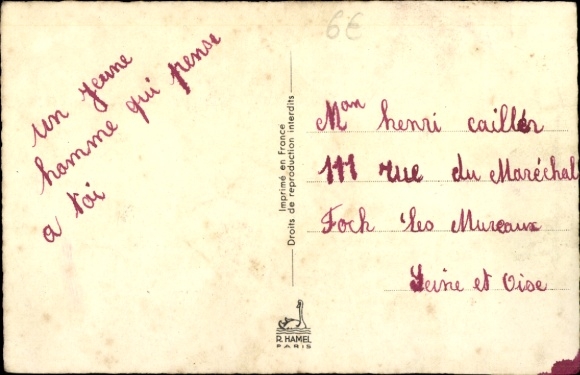 6€
un jeune
homme qui pense
a toi
Imprimé en France
Droits de reproduction interdits
Mon henri cailler
111 rue du Maréchal
Foch les Mureaux
Seine et Oise
R. HAMEL
PARIS